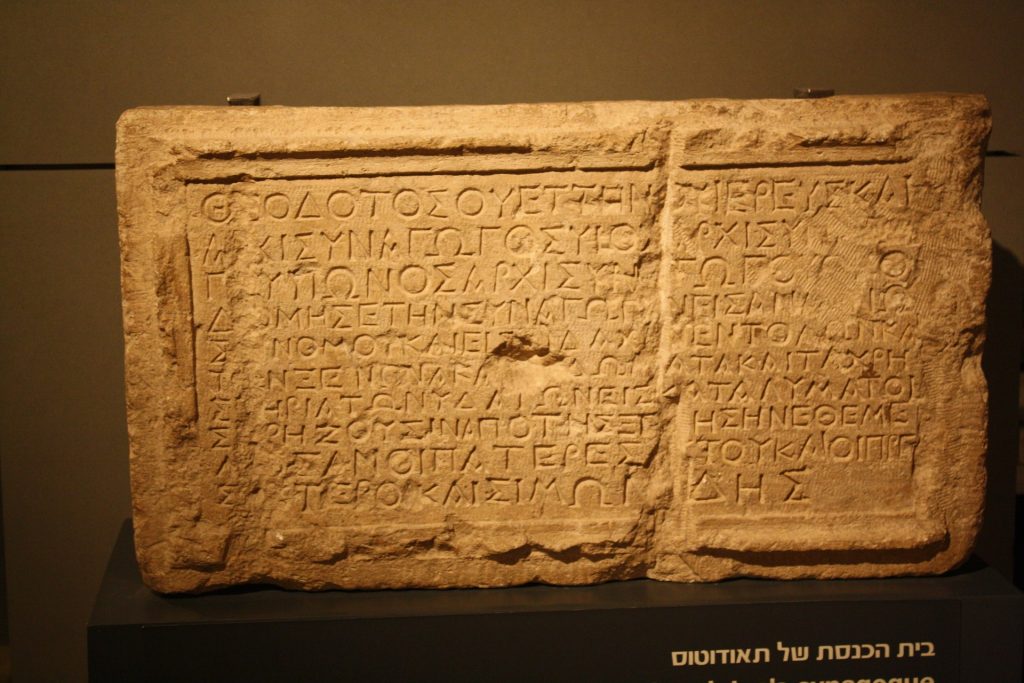 ΘΕΟΔΟΤΟΣ ΟΥΕΤΤΗΝΟΥ ΙΕΡΕΥΣ ΚΑΙ
ΑΡΧΙΣΥΝΑΓΩΓΟΣ ΥΙΟΣ ΑΡΧΙΣΥ
ΥΙΩΝΟΣ ΑΡΧΙΣΥΝ ΓΩΓΟΥ Ο
ΔΟΜΗΣΕ ΤΗΝ ΣΥΝΑΓΩΓ Ν ΕΙΣ ΑΝ Ω
Ν ΝΟΜΟΥ ΚΑΙ ΕΙΣ ΙΔΑΧΗΝ ΕΝΤΟΛΩΝ ΚΑΙ
Τ Ν ΞΕΝΩΝΑ ΚΑ ΔΩΜΑΤΑ ΚΑΙ ΤΑ ΧΡΗ
Σ ΗΡΙΑ ΤΩΝ ΥΔΑΤΩΝ ΕΙΣ ΚΑΤΑΛΥΜΑ ΤΟΙ
Σ ΡΗΖΟΥΣΙΝ ΑΠΟ ΤΗΣ ΞΕ ΗΣ ΗΝ ΕΘΕΜΕ
Λ ΣΑΝ ΟΙ ΠΑΤΕΡΕΣ ΥΤΟΥ ΚΑΙ ΟΙ ΠΡΕ
Σ ΥΤΕΡΟΙ ΚΑΙ ΣΙΜΩΝ ΔΗΣ
בית הכנסת של תאודוטוס
synagogue